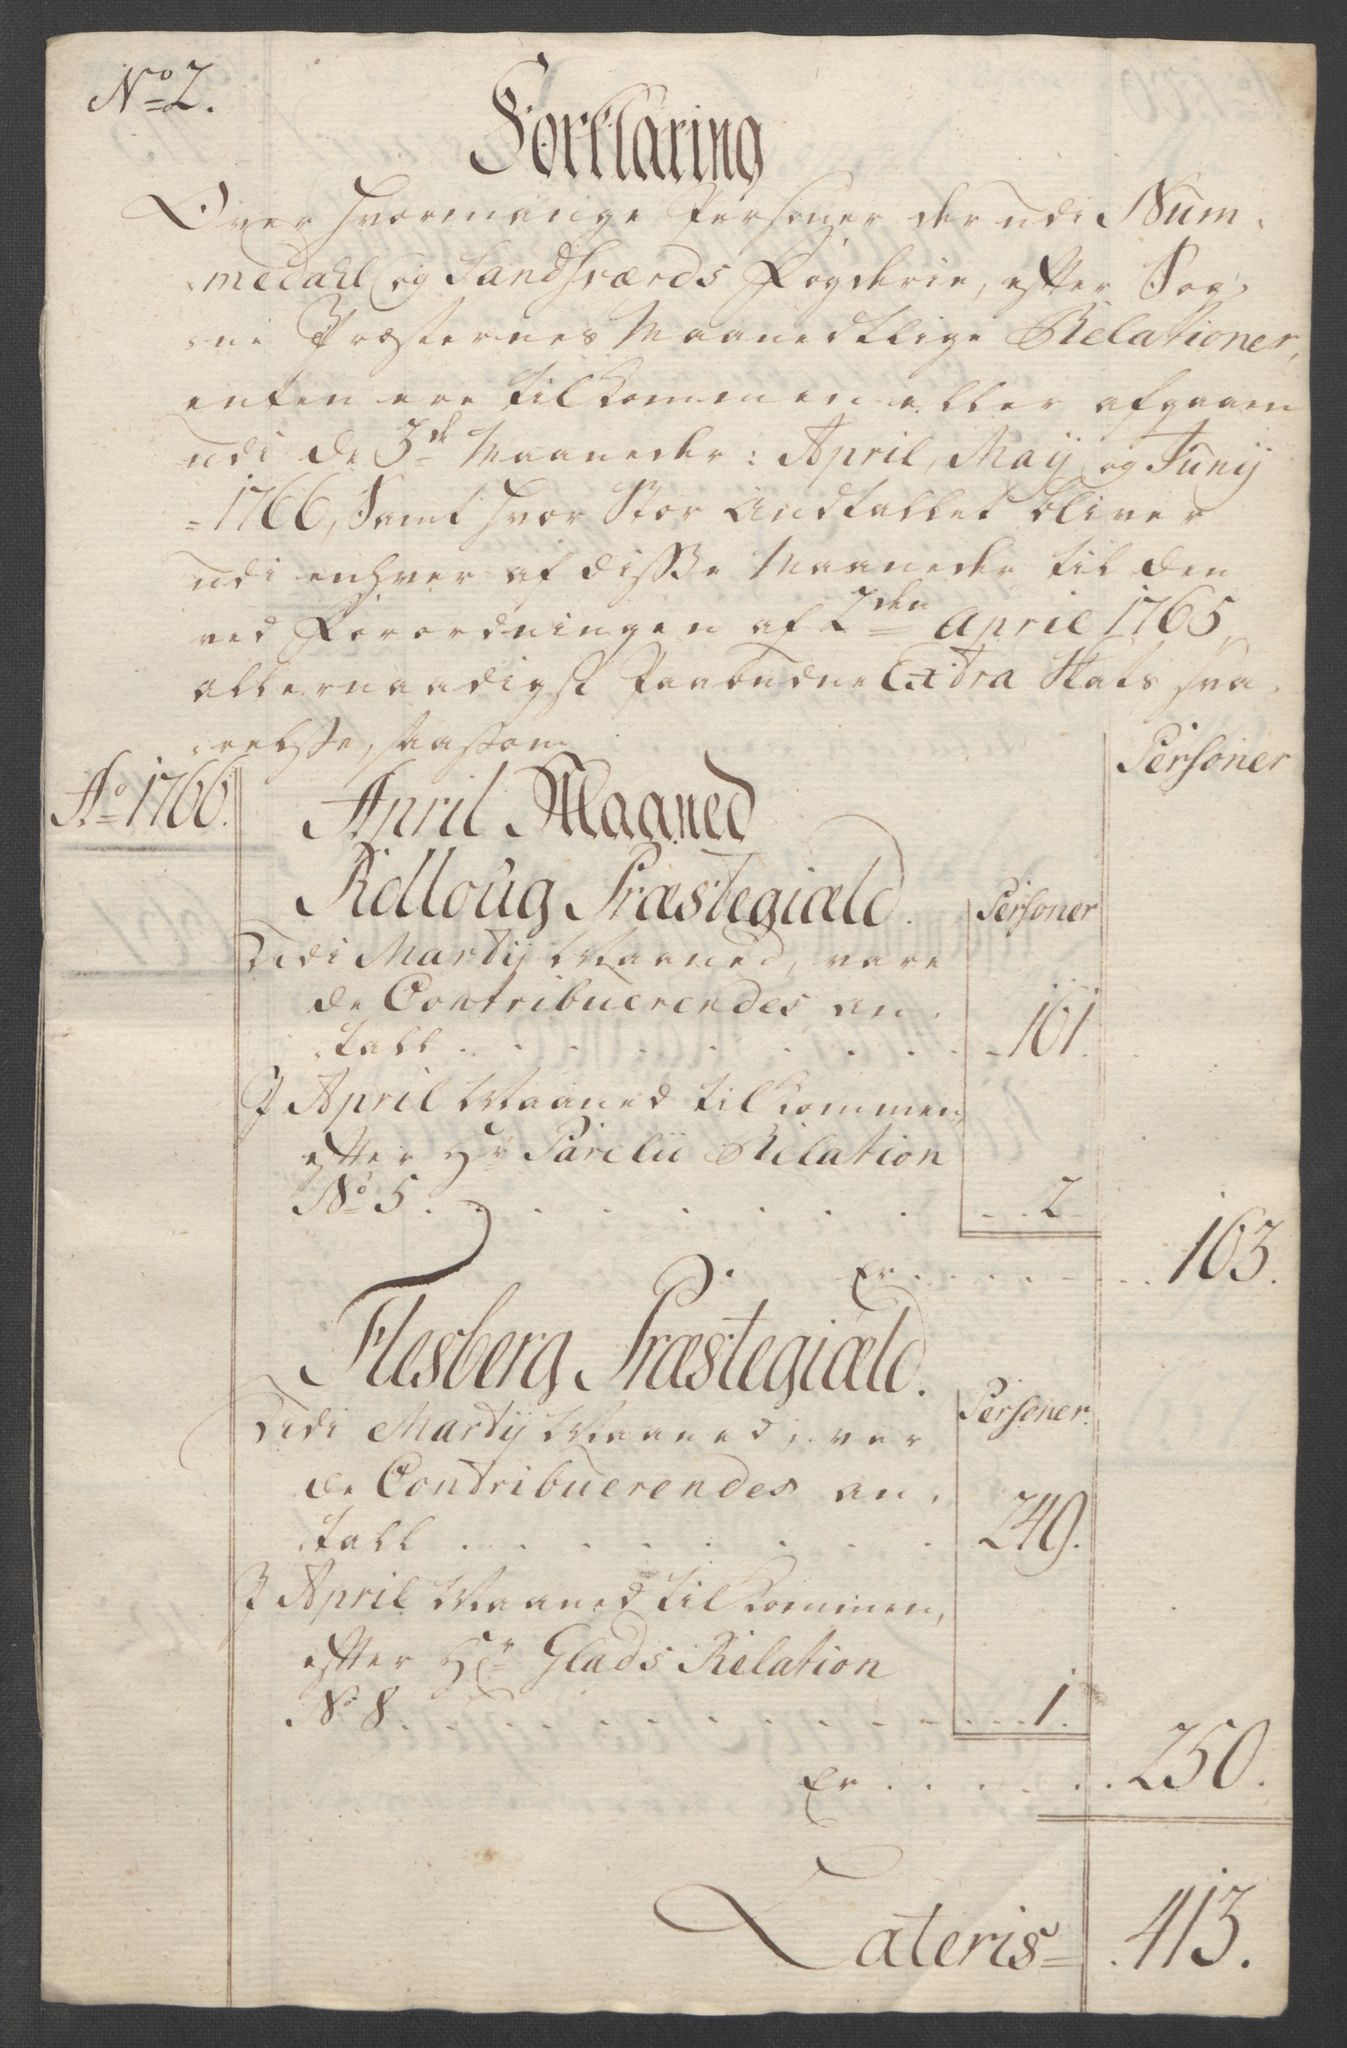 No 2.
Forklaring
Over hvormange Personer der udi Num-
medahl og Sandsværds Fogderie, efter Sog-
ne Præsternes Maanedtlige Relationer,
enten ere tilkommen eller afgaaen
udi de 3de Maaneder: April, Maij og Junij
1766, Samt hvor Stor Andtallet bliver
udi enhver af disse Maaneder til den
ved Forordningen af 2den April 1765
allernaadigst Paabudne Extra Skats Sva-
relsse, saasom
Personer
Ao 1766.
April Maaned
Rolloug Præstegiæld.
Personer
Udi Martij Maaned, vare
de Contribuerendes an-
tall . . . . . . . . . 161.
I April Maaned tilkommen,
efter Hr Parelii Relation
No 5 . . . . . . . . . 2
Er . . . . . . 163.
Flesberg Præstegiæld.
Personer
Udi Martij Maaned, var
de Contribuerendes an-
tall . . . . . . . . . 249.
I April Maaned tilkommen,
efter Hr Glads Relation
No 8 . . . . . . . . . 1.
Er . . . . . . 250.
Lateris 413.